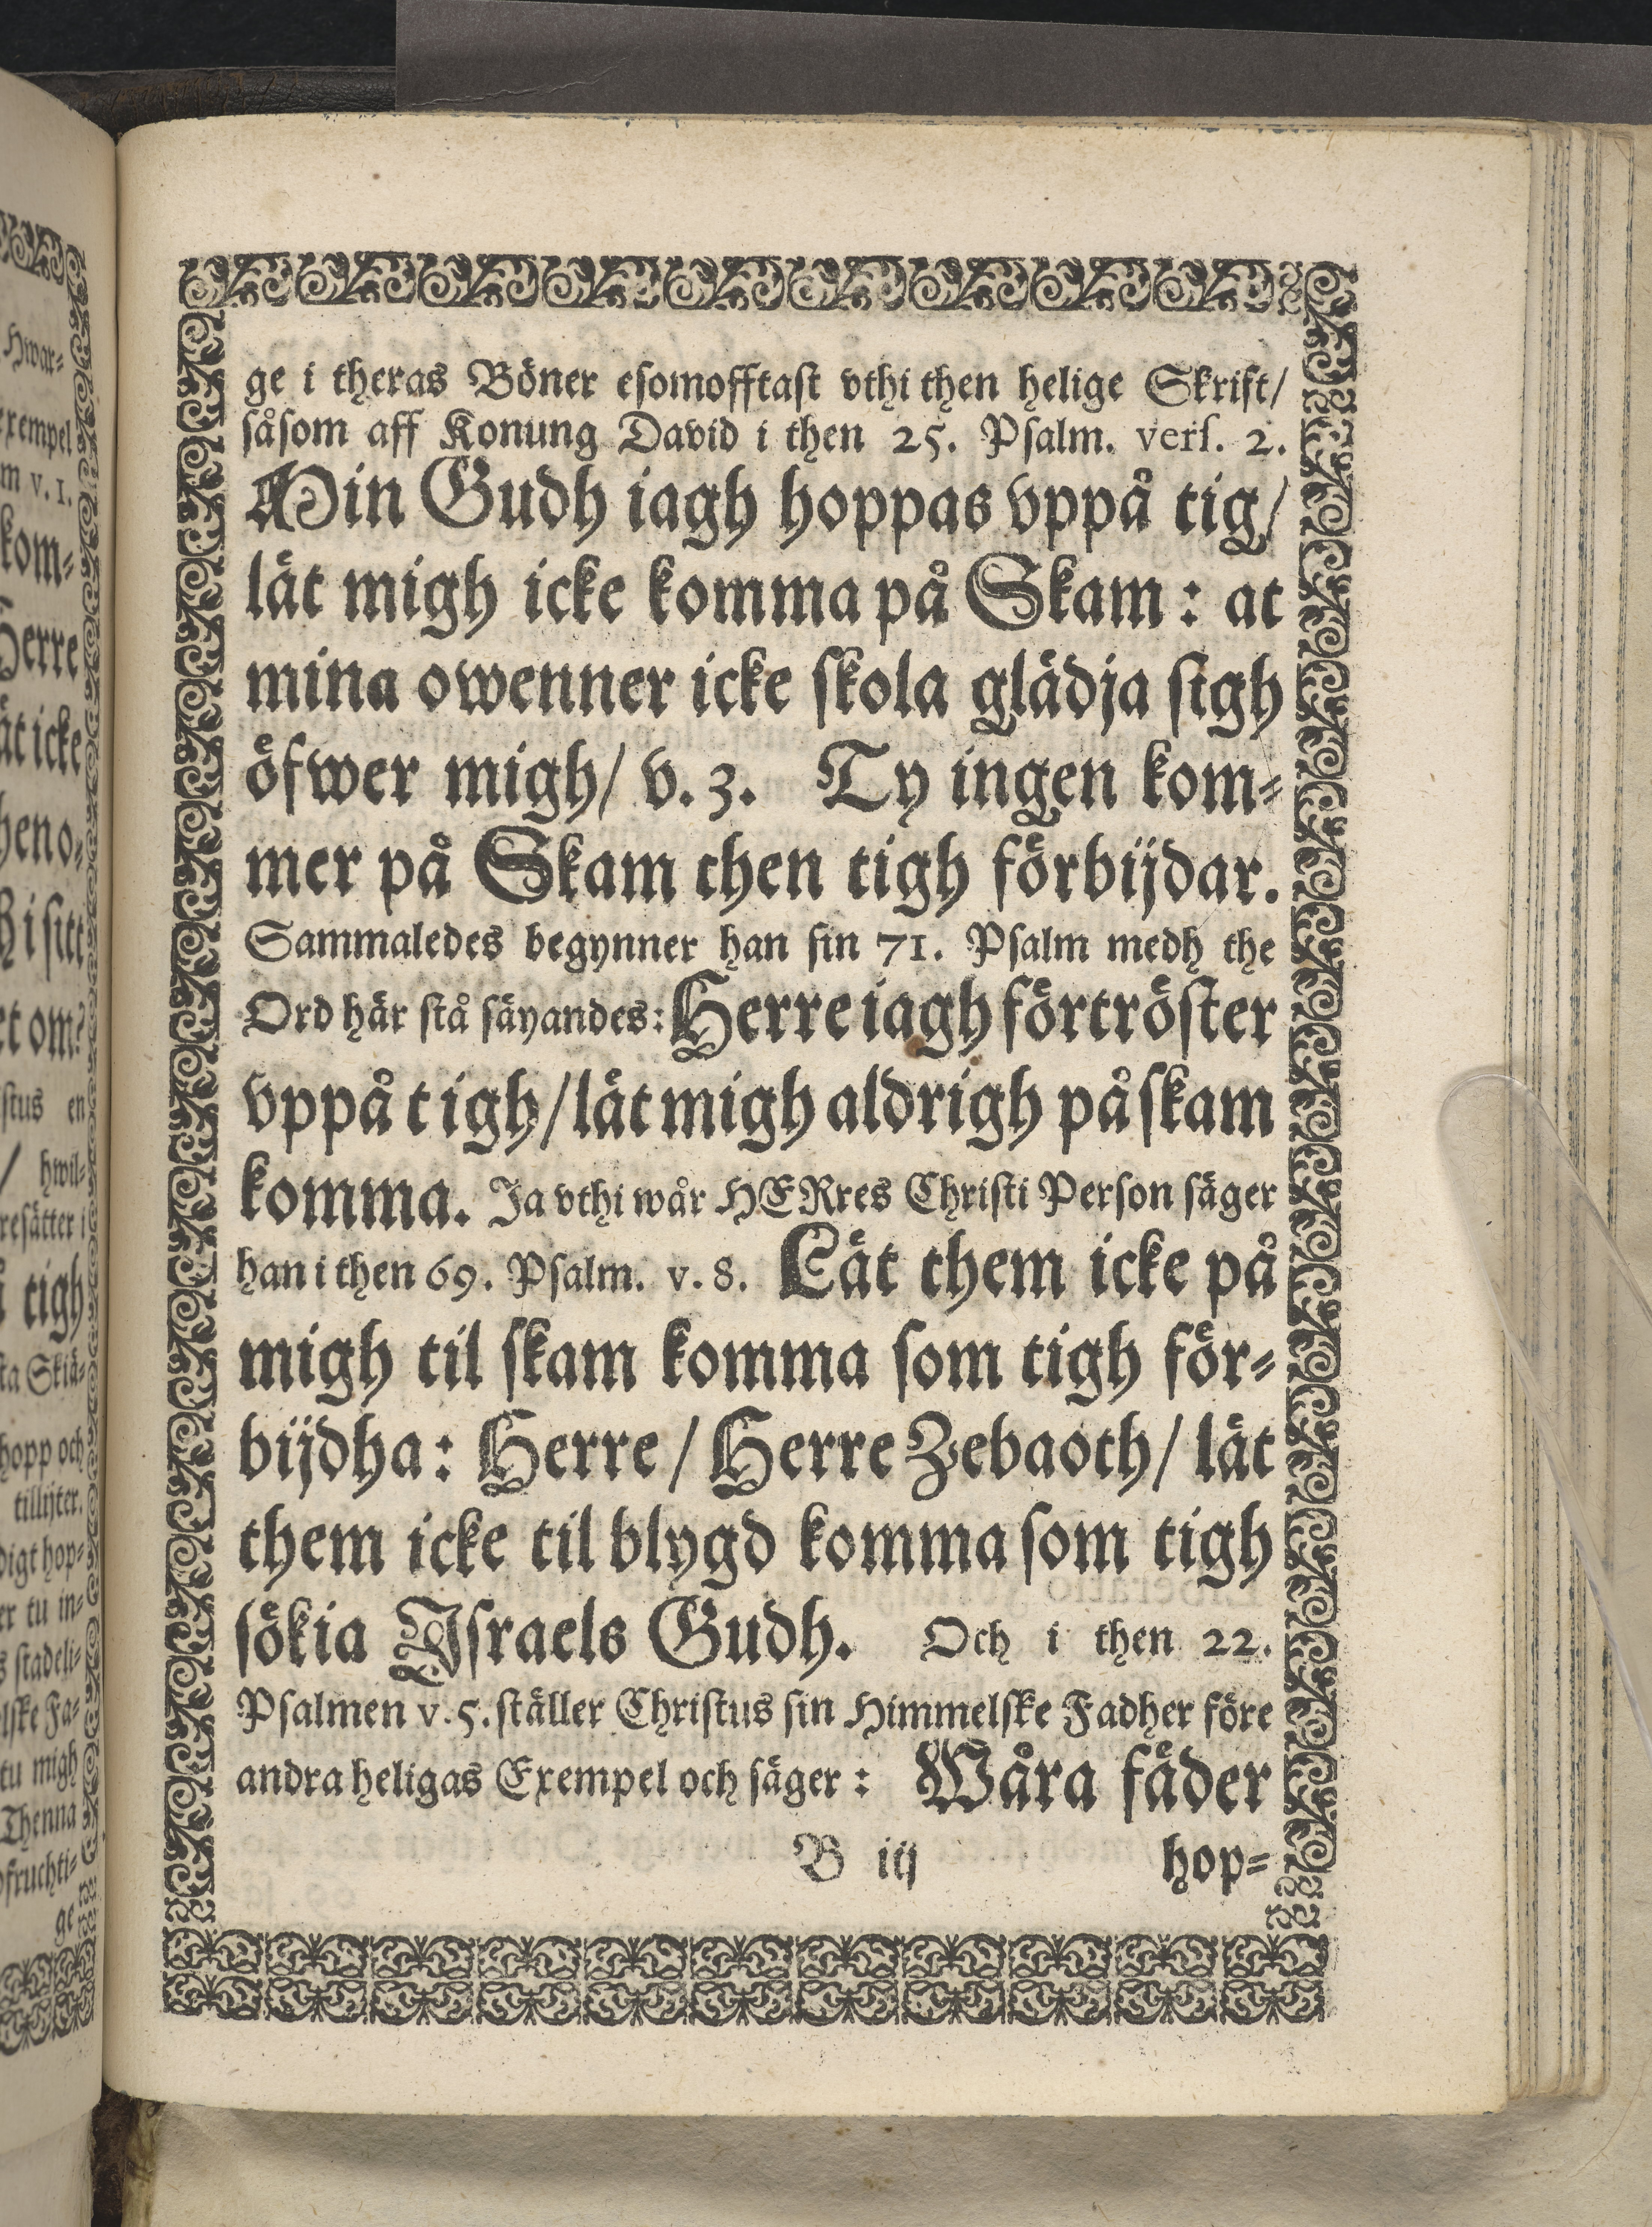 ge i theras Böner esomofftast vthi then helige Skrift/
såsom aff Konung David i then 25. Psalm. vers. 2.
Min Gudh iagh hoppas vppå tig/
lät migh icke komma på Skam: at
mina owenner icke skola glädja sigh
öfwer migh/ v. 3. Ty ingen kom-
mer på Skam then tigh förbijdar.
Sammaledes begynner han sin 71. Psalm medh the
Ord här stå säyandes: Herre iagh förtröster
vppå t igh/ lät migh aldrigh på skam
komma. Ja vthi wår HERres Christi Person säger
han i then 69. Psalm. v. 8. Lät them icke på
migh til skam komma som tigh för-
bijdha: Herre/ Herre Zebaoth/ lät
them icke til blygd komma som tigh
sökia Israels Gudh. Och i then 22.
Psalmen v. 5. ställer Christus sin Himmelske Fadher före
andra heligas Exempel och säger: Wåra fäder
B iij hop-
Hwar-
exempel
m v. 1.
kom-
Herre
ät icke
heno-
i sitt
et om?
stus en
/ hwil-
resätter i
tigh
ta Skiä-
hopp och
tillijter.
digt hop-
er tu in-
s stadeli-
lske Fa-
tu migh
Thenna
ofruchti-
ge